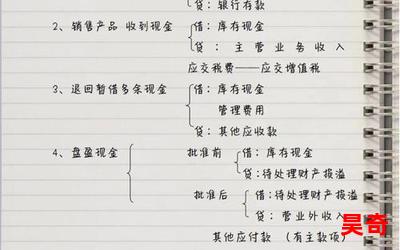 贷：银行存款
2、销售产品 收到现金 借：库存现金
贷：主营业务收入
应交税费——应交增值税
3、退回暂借多余现金 借：库存现金
管理费用
贷：其他应收款
4、盘盈现金 批准前 借：库存现金
贷：待处理财产损溢
批准后 借：待处理财产损溢
贷：营业外收入
其他应付款（有主款项）
昊奇